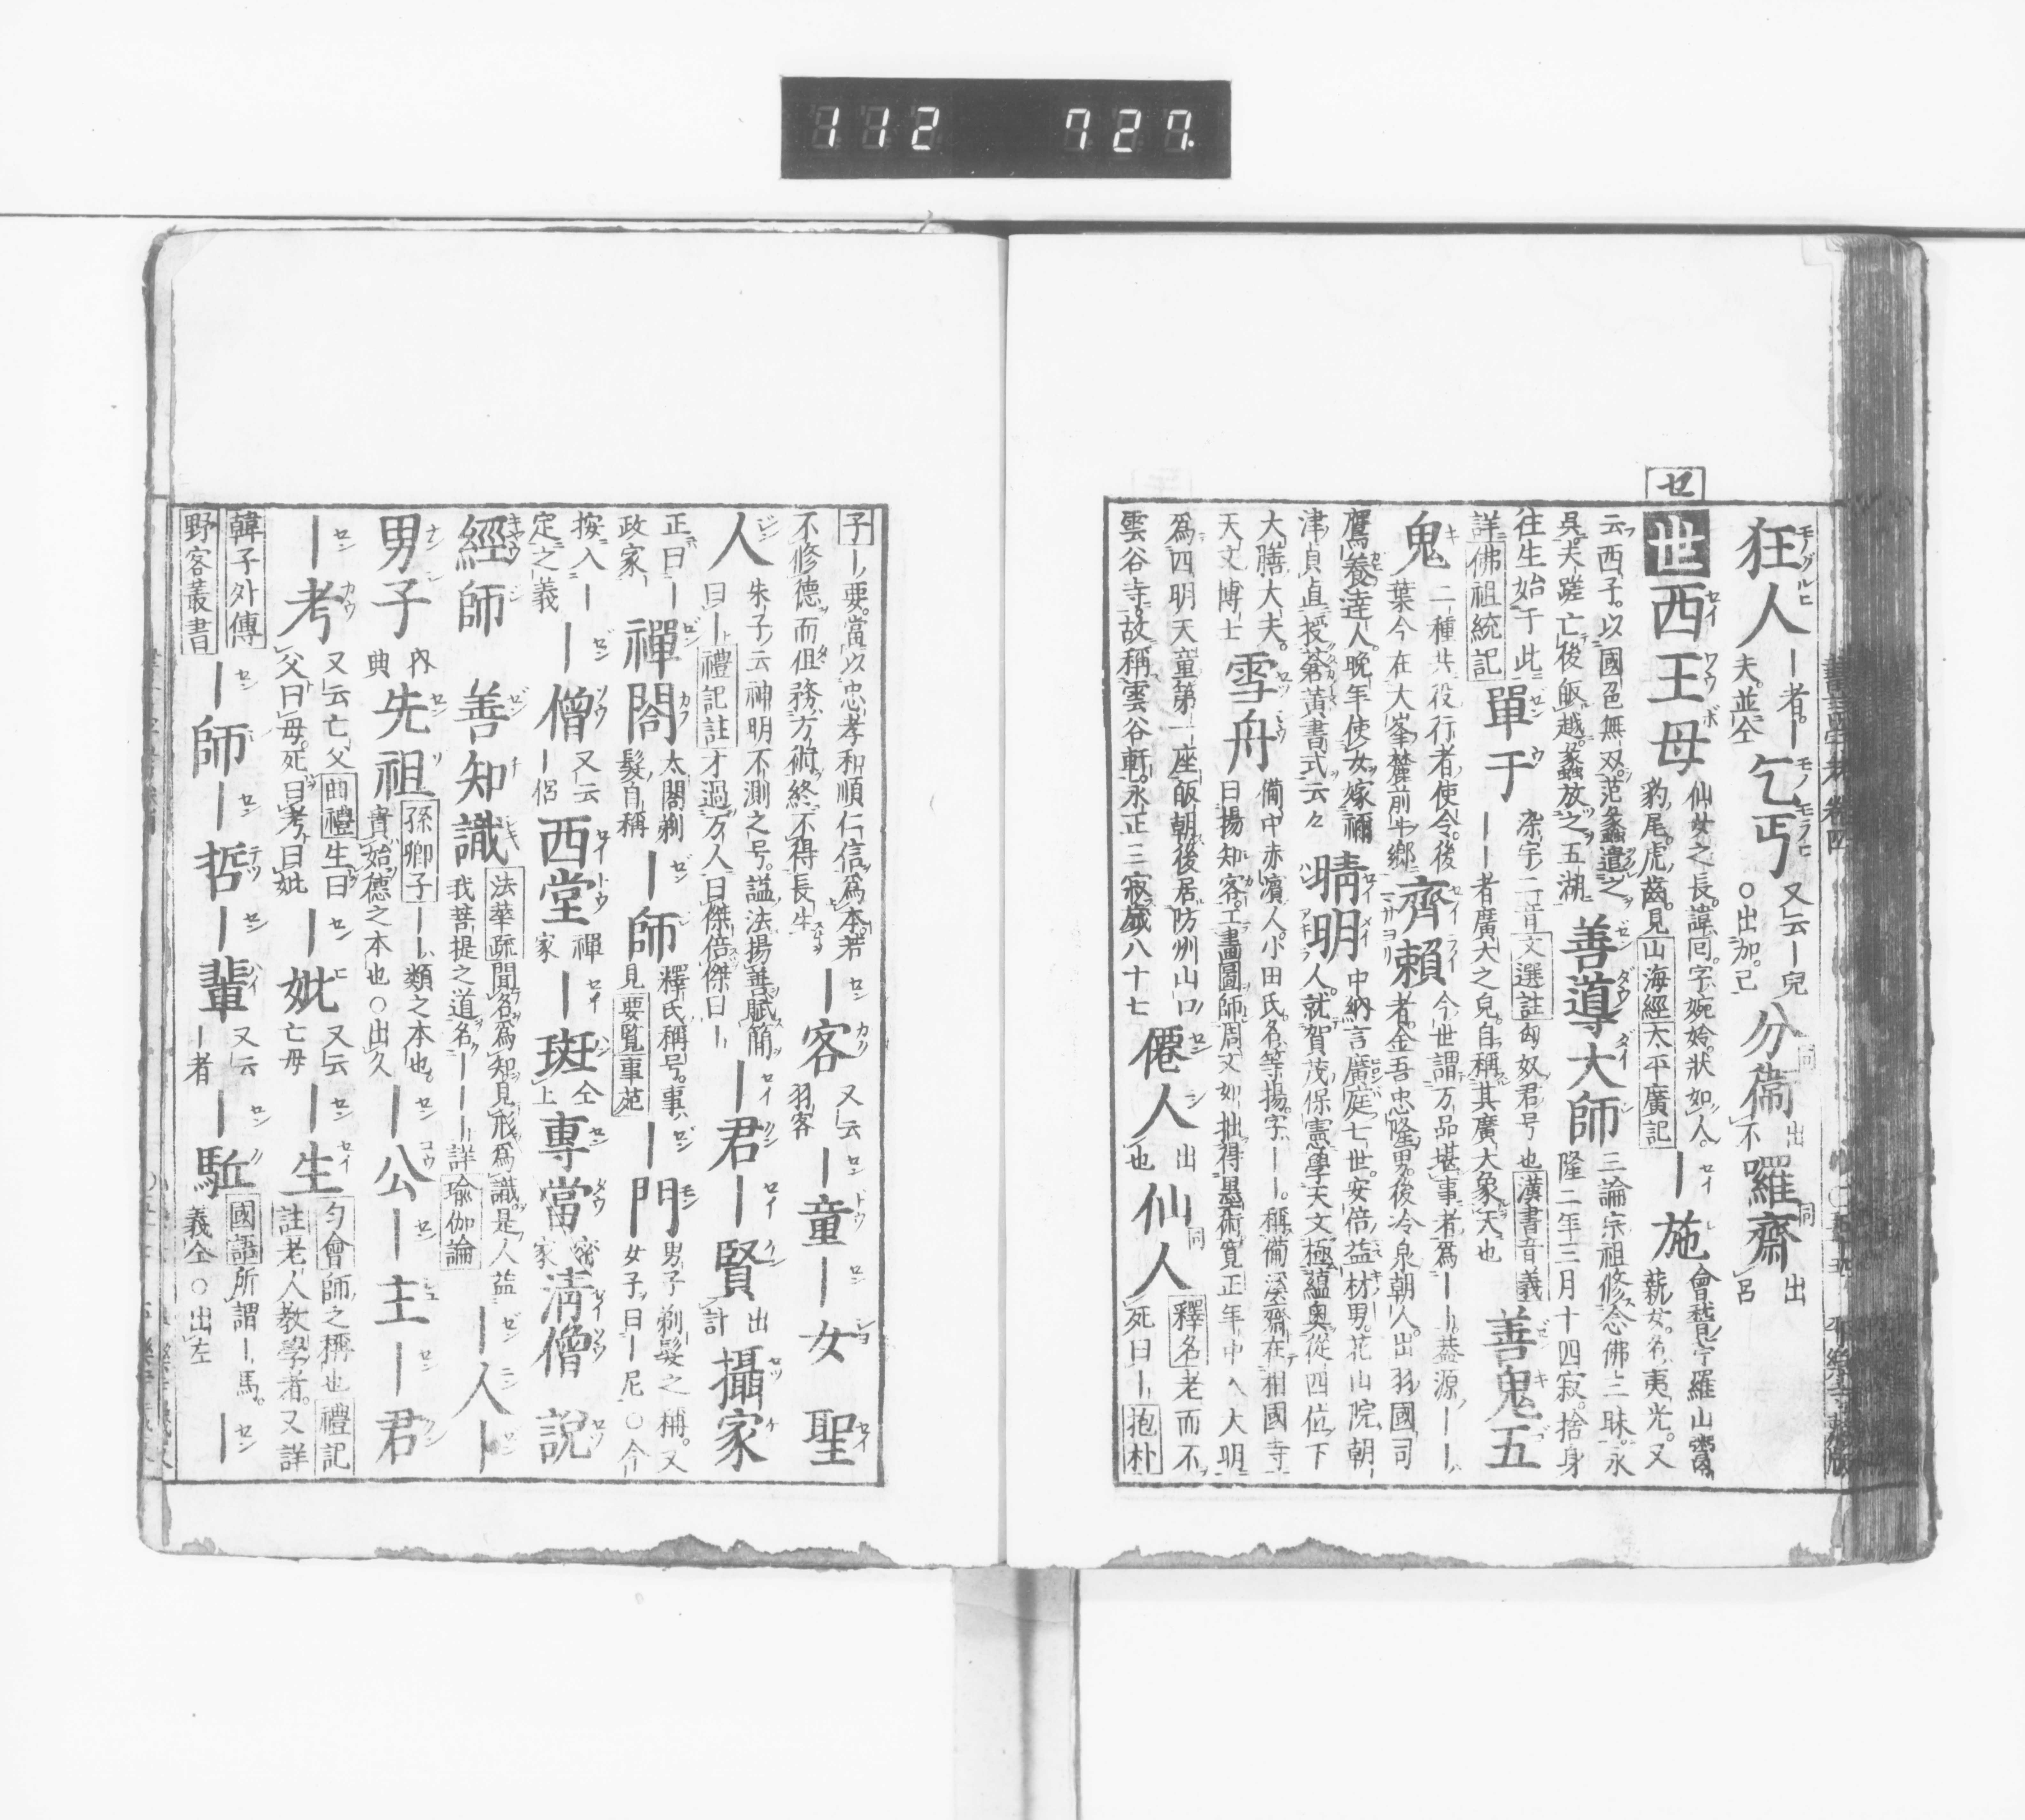 112 727
セ
狂人 ―者。― 夫。並仝 乞丐 又云―兒 ○出加。己 分衞 出 不 囉齋 出 呂
世 西王母 仙女之長。諱囘。字婉姈。狀如人。豹尾。虎齒。見山海經太平廣記 ―施 會稽苧羅山鬻薪女。名夷光。又
云西子。以國色無双。范蠡遣之吳。夫蹉亡後皈越。蠡放之五湖 善導大師 三論宗祖修念佛三昧。永隆二年三月十四寂。捨身
往生始于此詳佛祖統記 單于 杂宇二音文選註匈奴君号也漢書音義――者廣大之皃。自稱其廣大象天也 善鬼五
鬼 二種共役行者使令。後葉今在大峯麓前牛鄉 齊賴 今世謂万品堪事者爲――。蓋源――者。金吾忠隆男。後冷泉朝人。出羽國司
鷹養達人。晚年使女嫁禰津貞直授蒼黃書式云々 晴明 中納言廣庭七世。安倍益材男。花山院朝人。就賀茂保憲學天文極蘊奧從四位下
大膳大夫。天文博士 雪舟 備中赤濱人。小田氏。名等揚。字――。稱備溪齋在相國寺曰揚知客。工畫圖師周文如拙得墨術寬正年中入大明
爲四明天童第一座皈朝後居防州山口雲谷寺。故稱雲谷軒。永正三寂歲八十七 僊人 出也 仙人 釋名老而不死曰―抱朴
子―要當以忠孝和順仁信爲本。若不修德而但務方術終不得長生 ―客 又云羽客 ―童 ―女 聖
人 朱子云神明不測之号。謚法揚善賦簡曰―禮記註才過万人曰傑倍傑曰― ―君 ―賢 出計 攝家
正曰―政家 禪閤 太閤剃髮自稱 ―師 釋氏稱号。事見要覽事苑 ―門 男子剃髮之稱。又女子曰―尼○今
按入―定之義 ―僧 又云―侶 西堂 禪家 ―班 仝上 專當 密家 淸僧 說
經師 善知識 法華疏聞名爲知見形爲識是人益我菩提之道名―――詳瑜伽論 ―人―
男子 內典 先祖 孫卿子――類之本也。貴始德之本也○出久 ―公 ―主 ―君
―考 又云亡父曲禮生曰父曰母。死曰考曰妣 ―妣 又云亡母 ―生 勻會師之稱也禮記註老人敎學者。又詳
韓子外傳野客叢書 ―師 ―哲 ―輩 又云―者 ―駈 國語所謂―馬。義仝○出左 ―